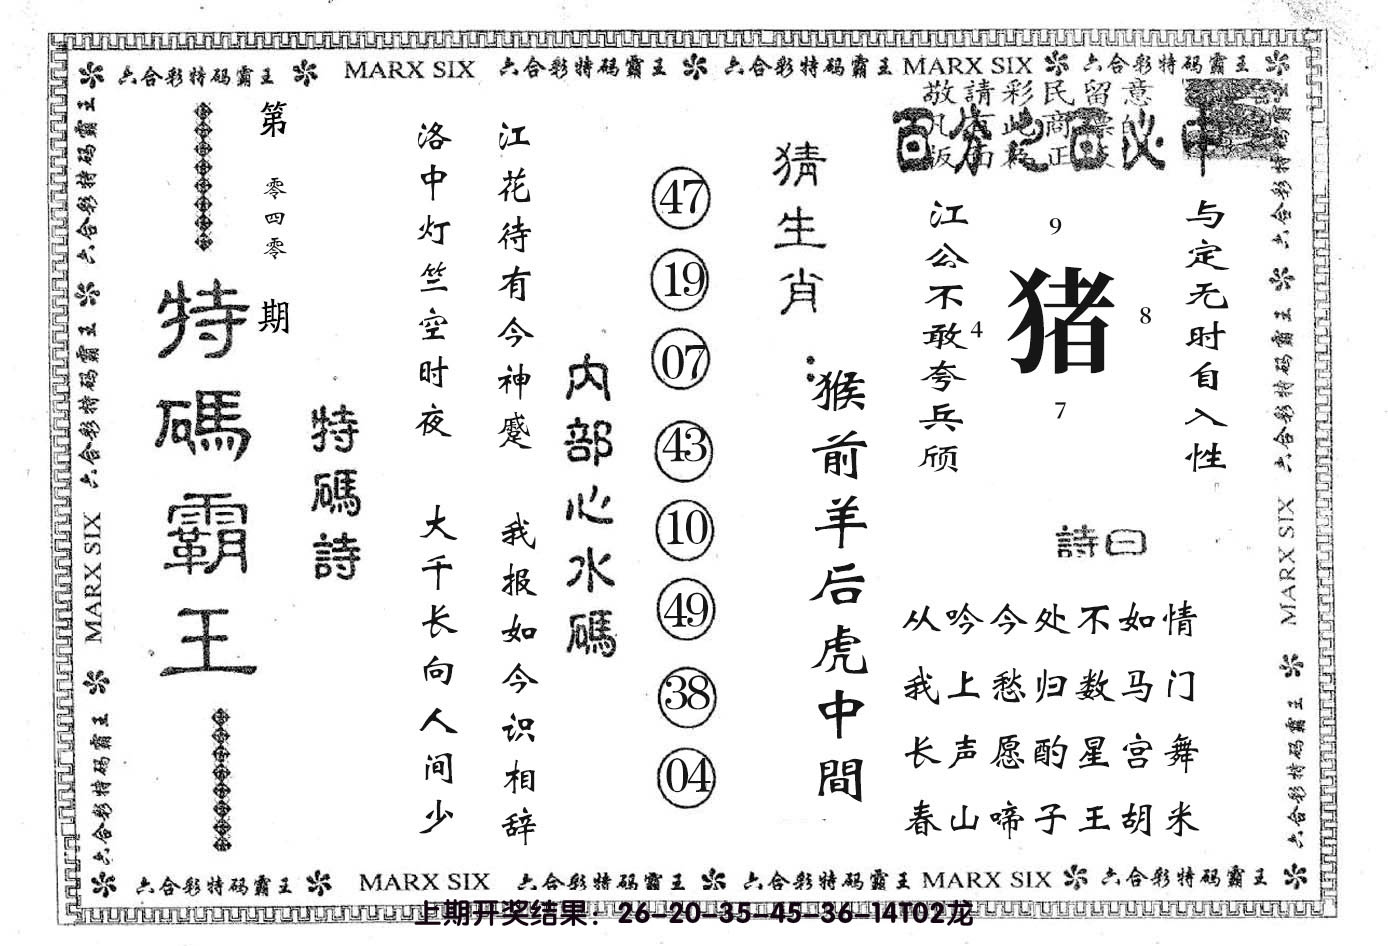 六合彩特码霸王 MARX SIX 六合彩特码霸王 六合彩特码霸王 MARX SIX 六合彩特码霸王
敬請彩民留意
第零四零期
特碼霸王
特碼詩
洛中灯竺空时夜 大千长向人间少
江花待有今神蹙 我报如今识相辞
内部心水碼
47
19
07
43
10
49
38
04
猜生肖:
猴前羊后虎中間
江公不敢夸兵颀
9
4
猪
8
7
与定无时自入性
詩曰
从吟今处不如情
我上愁归数马门
长声愿酌星宫舞
春山啼子王胡米
六合彩特码霸王 六合彩特码霸王 MARX SIX 六合彩特码霸王
六合彩特码霸王 六合彩特码霸王 MARX SIX 六合彩特码霸王
六合彩特码霸王 MARX SIX 六合彩特码霸王 六合彩特码霸王 MARX SIX 六合彩特码霸王
上期开奖结果：26-20-35-45-36-14T02龙